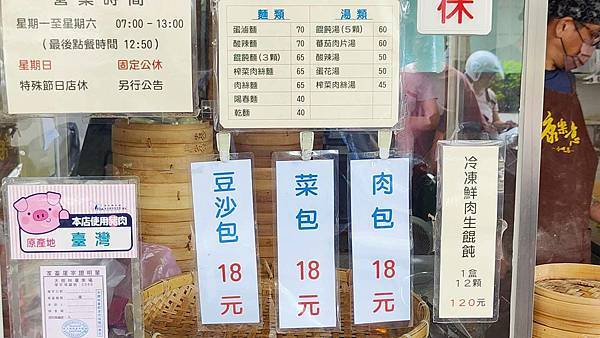 營業時間
星期一至星期六 07:00-13:00
(最後點餐時間 12:50)
星期日 固定公休
特殊節日店休 另行公告
麵類 湯類
蛋滷麵 70 餛飩湯(5顆) 60
酸辣麵 70 蕃茄肉片湯 60
餛飩麵(3顆) 65 酸辣湯 50
榨菜肉絲麵 65 蛋花湯 50
肉絲麵 65 榨菜肉絲湯 45
陽春麵 40
乾麵 40
休
豆沙包
18
元
菜包
18
元
肉包
18
元
冷凍鮮肉生餛飩
1盒
12顆
120元
本店使用豬肉
原產地 臺灣
康樂意